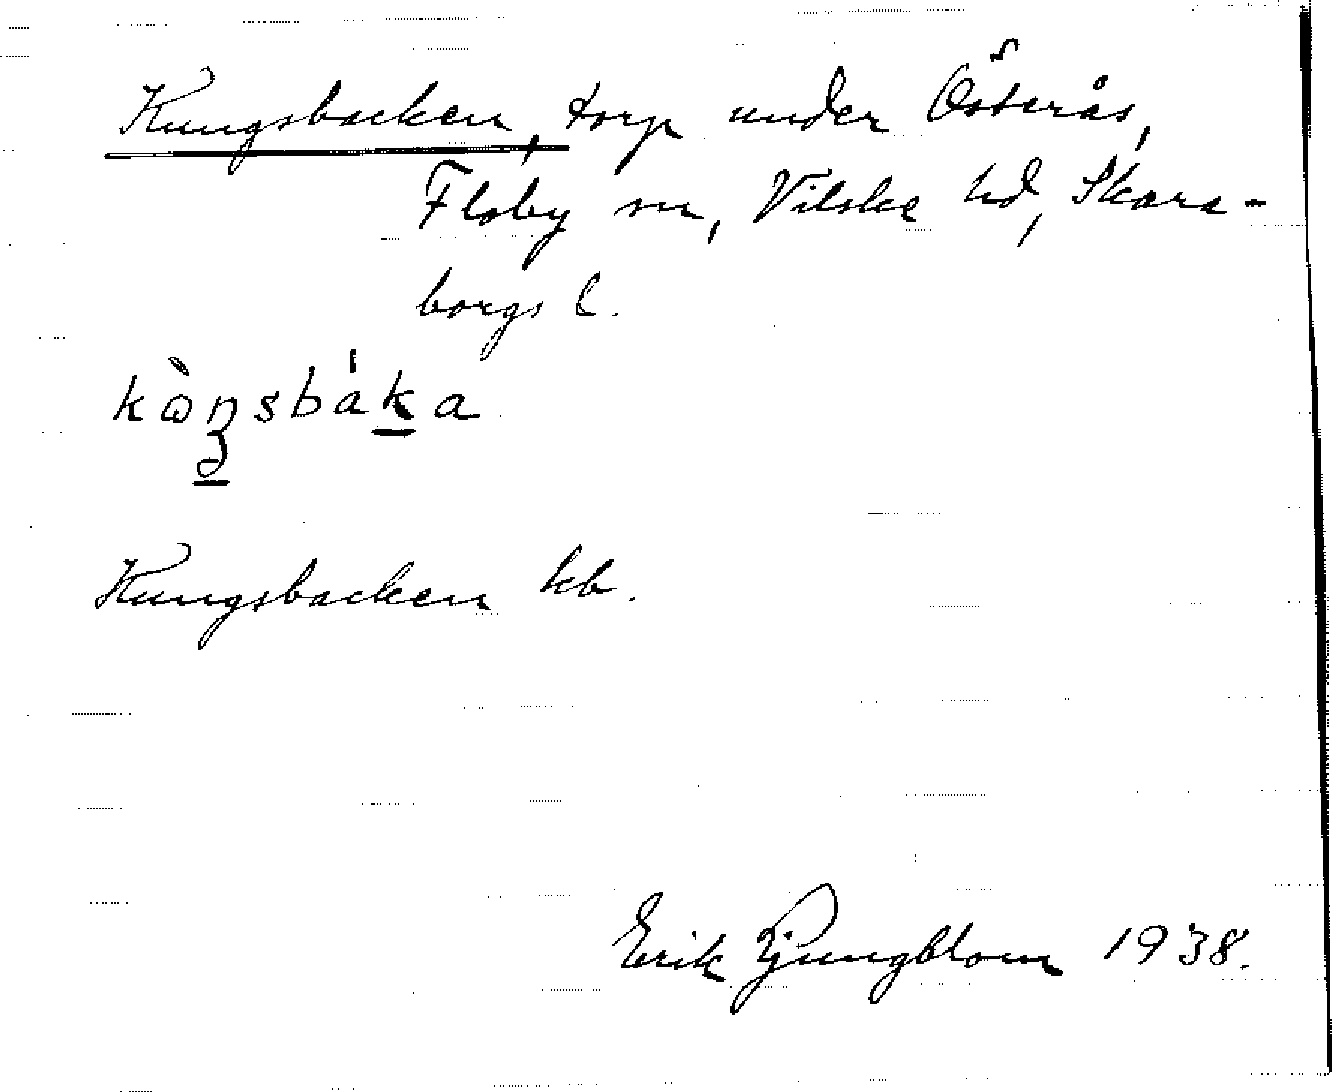 Kungsbacken, torp under Österås,
Floby sn, Vilske hd, Skara-
borgs l.
kòŋsbáka
Kungsbacken kb.
Erik Ljungblom 1938.